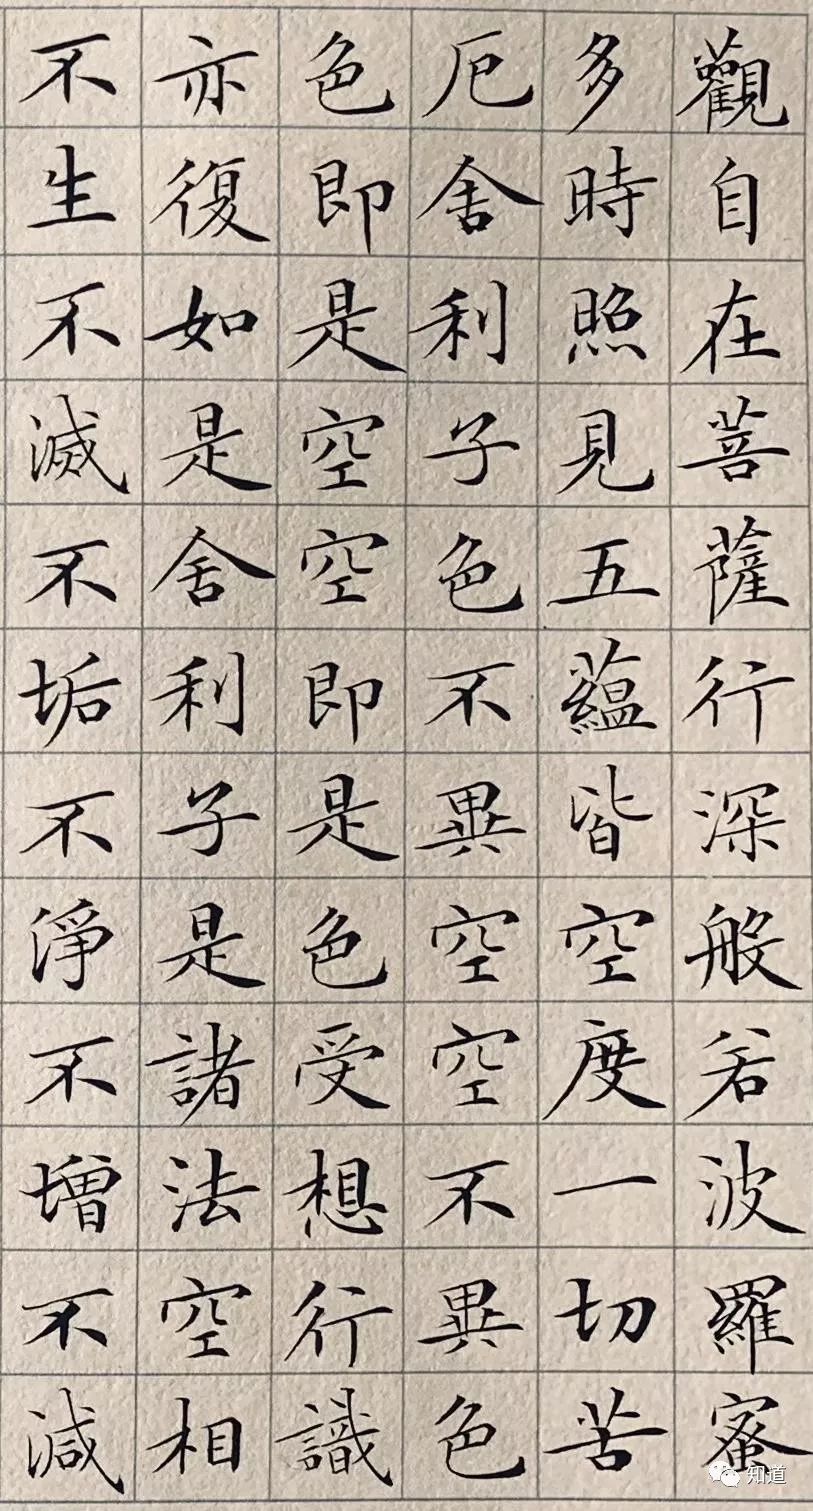 觀自在菩薩行深般若波羅蜜
多時照見五蘊皆空度一切苦
厄舍利子色不異空空不異色
色即是空空即是色受想行識
亦復如是舍利子是諸法空相
不生不滅不垢不淨不增不減
知道